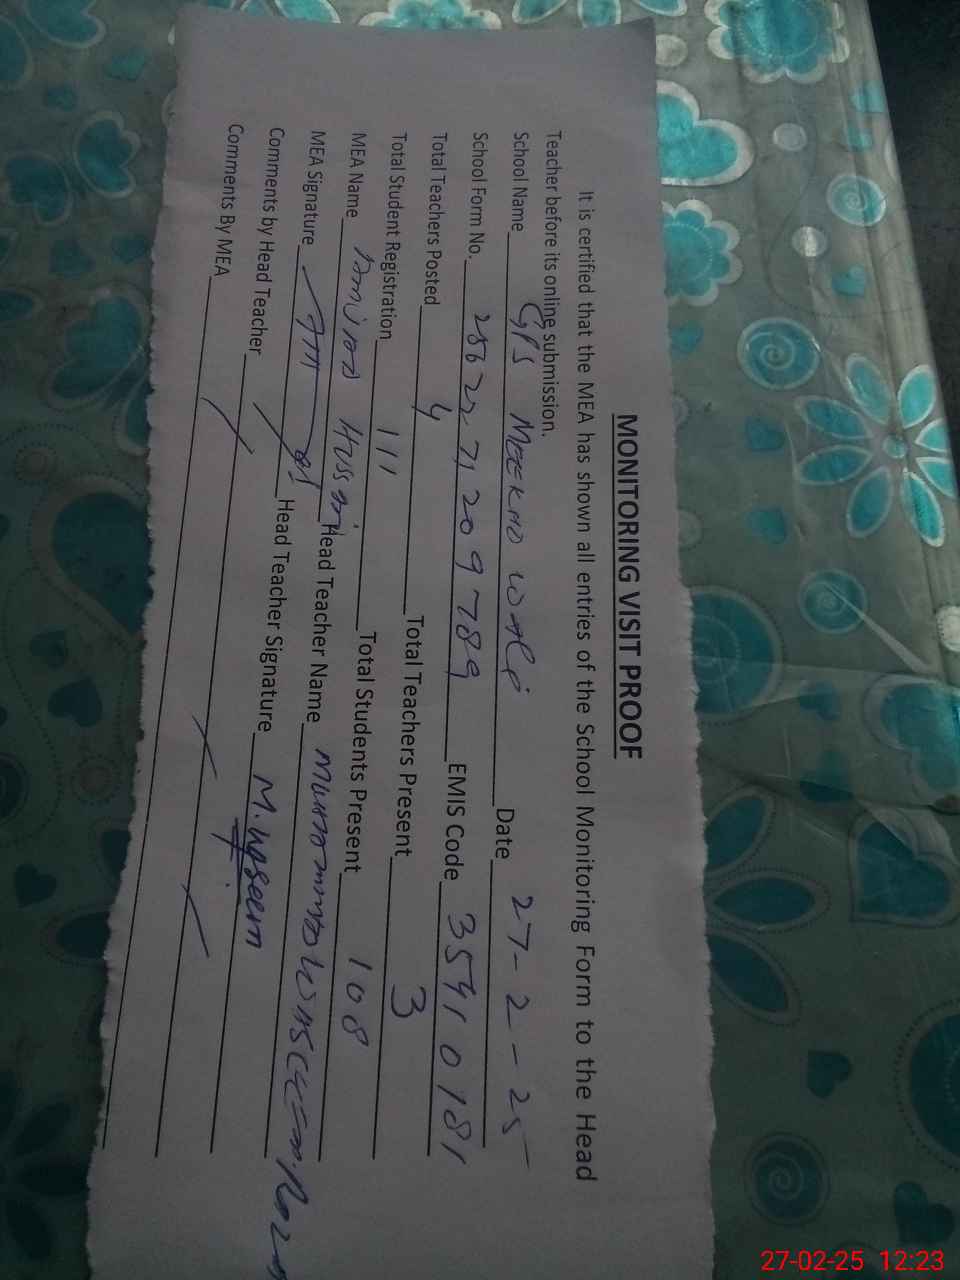 MONITORING VISIT PROOF
It is certified that the MEA has shown all entries of the School Monitoring Form to the Head
Teacher before its online submission.
School Name GPS Date 27-2-25
School Form No. 2862271209789 EMIS Code 35410181
Total Teachers Posted 4 Total Teachers Present 3
Total Student Registration 111 Total Students Present 108
MEA Name Hussain Head Teacher Name
MEA Signature Head Teacher Signature M. Waseem
Comments by Head Teacher
Comments By MEA
27-02-25 12:23